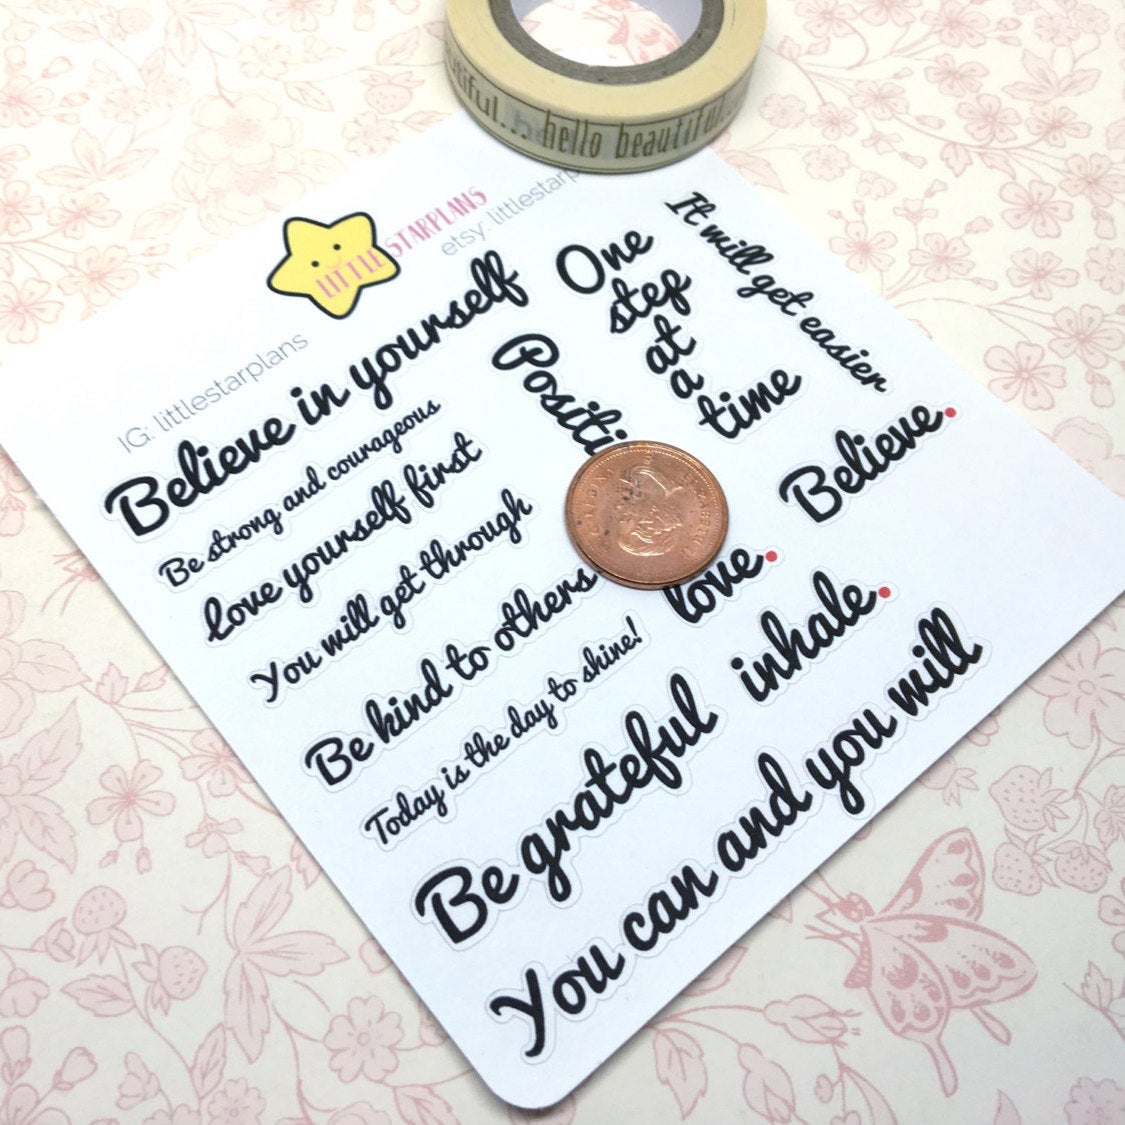 hello beautiful...
LITTLE STARPLANS
IG: littlestarplans
etsy: littlestarp
Believe in yourself
Be strong and courageous
love yourself first
You will get through
Be kind to others
Today is the day to shine!
Be grateful
You can and you will
Positi
One
step
at
a
time
It will get easier
Believe.
love.
inhale.